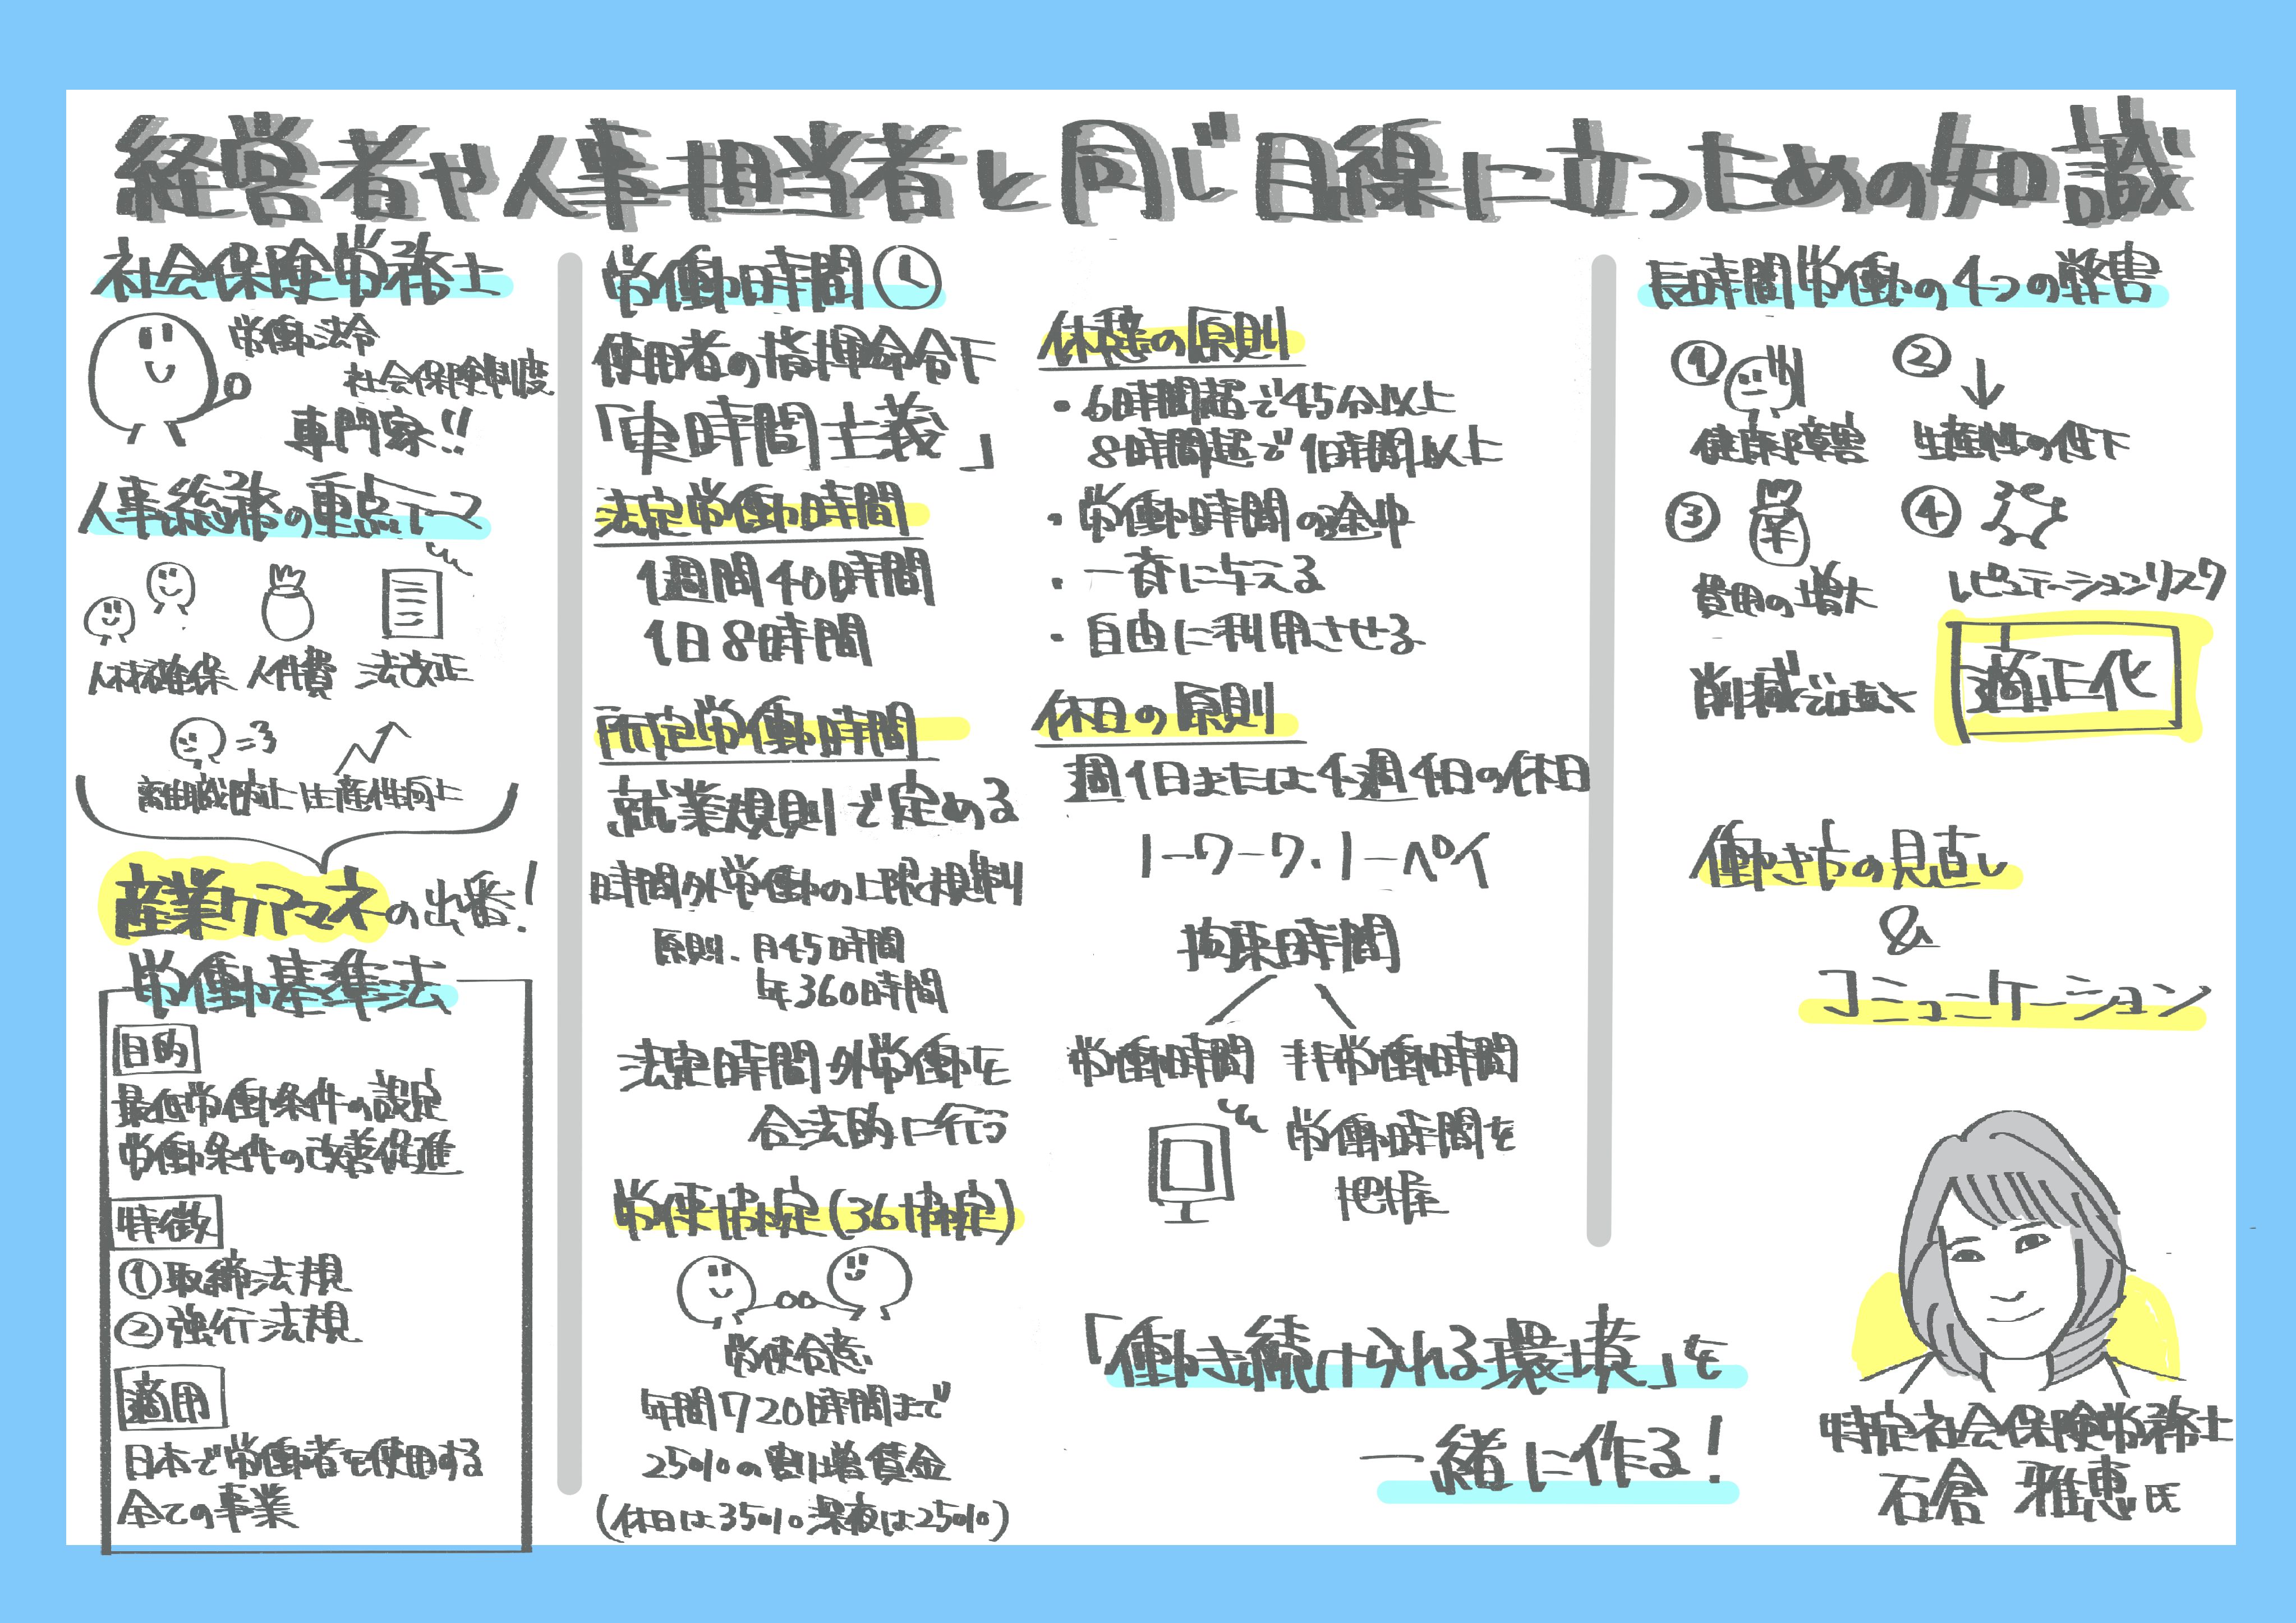 経営者や人事担当者と同じ目線に立っための知識
社会保険労務士
労働法令
社会保険制度
専門家!!
人事総務の重点テーマ
人材確保 人件費 法改正
離職防止 生産性向上
産業ケアマネの出番!
労働基準法
目的
最低労働条件の設定
労働条件の改善促進
特徴
①取締法規
②強行法規
適用
日本で労働者を使用する
全ての事業
労働時間
使用者の指揮命令下
「実時間主義」
法定労働時間
1週間40時間
1日8時間
所定労働時間
就業規則で定める
時間外労働の上限規制
原則、月45時間
年360時間
法定時間外労働を
合法的に行う
労使協定(36協定)
労使合意
年間720時間まで
25%の割増賃金
(休日は35%深夜は25%)
休憩の原則
・6時間超で45分以上
8時間超で1時間以上
・労働時間の途中
・一斉に与える
・自由に利用させる
休日の原則
週1日または4週4日の休日
ノーワーク・ノーペイ
拘束時間
労働時間 非労働時間
労働時間を
把握
長時間労働の4つの弊害
①
健康障害
②
生産性の低下
③
¥
費用の増大
④
レピュテーションリスク
削減ではなく
適正化
働き方の見直し
&
コミュニケーション
「働き続けられる環境」を
一緒に作る!
特定社会保険労務士
石倉 雅恵氏